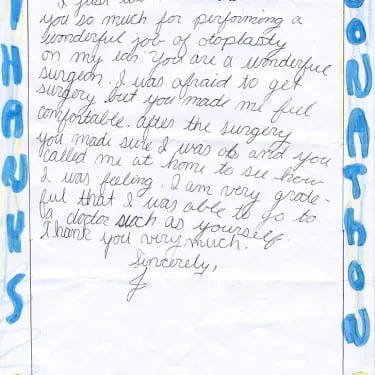 I just
you so much for performing a
wonderful job of otoplasty
on my ear. You are a wonderful
surgeon. I was afraid to get
surgery but you made me feel
comfortable. After the surgery
you made sure I was ok and you
called me at home to see how
I was feeling. I am very grate-
ful that I was able to go to
a doctor such as yourself.
Thank you very much.
Sincerely,
J
THANKS